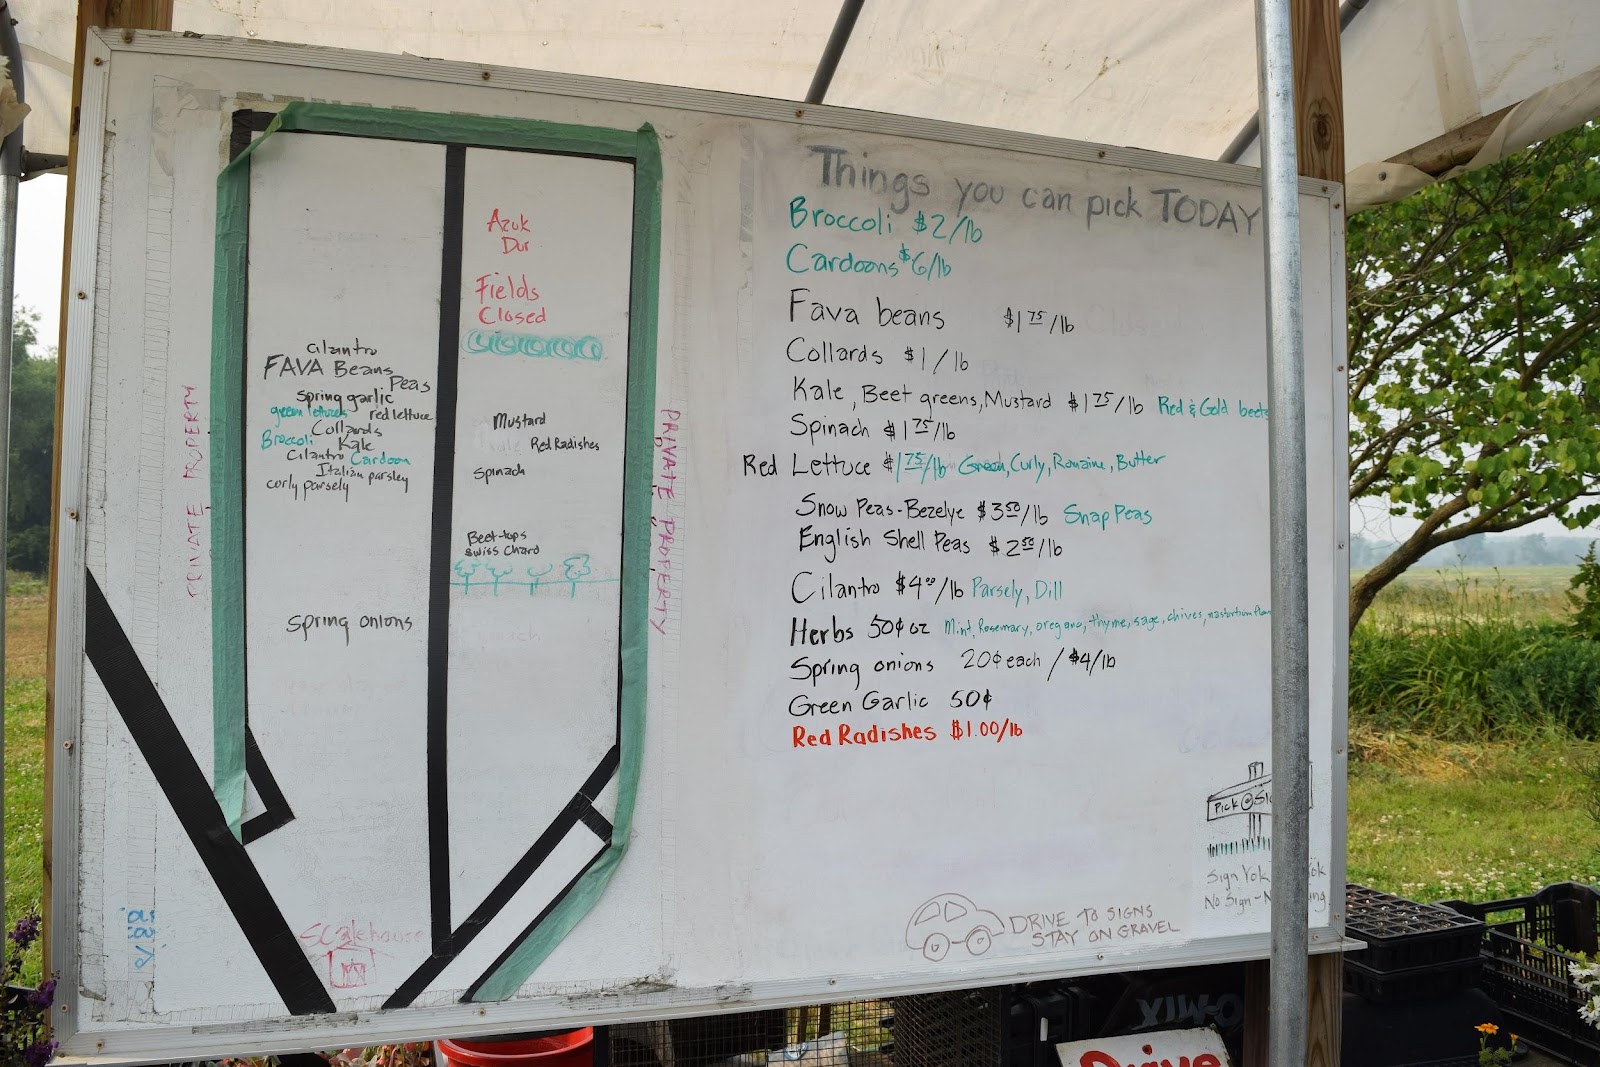 Azuk
Dur
Fields
Closed
cilantro
FAVA Beans
Peas
spring garlic
green lettuces red lettuce
Collards
Broccoli Kale
Cilantro Cardoon
Italian parsley
curly parsely
Mustard
Red Radishes
Spinach
Beet-tops
Swiss Chard
Spring onions
PRIVATE PROPERTY
PRIVATE PROPERTY
Scalehouse
Things you can pick TODAY
Broccoli $2/lb
Cardoons $6/lb
Fava beans $1 75/lb
Collards $1/lb
Kale, Beet greens, Mustard $1 75/lb Red & Gold beets
Spinach $1 75/lb
Red Lettuce $1 75/lb Green, Curly, Romaine, Butter
Snow Peas-Bezelye $3 50/lb Snap Peas
English Shell Peas $2 50/lb
Cilantro $4 00/lb Parsely, Dill
Herbs 50¢ oz Mint, Rosemary, oregano, thyme, sage, chives, nasturtium
Spring onions 20¢ each / $4/lb
Green Garlic 50¢
Red Radishes $1.00/lb
Pick
Sign
No Sign-
DRIVE TO SIGNS
STAY ON GRAVEL
Drive